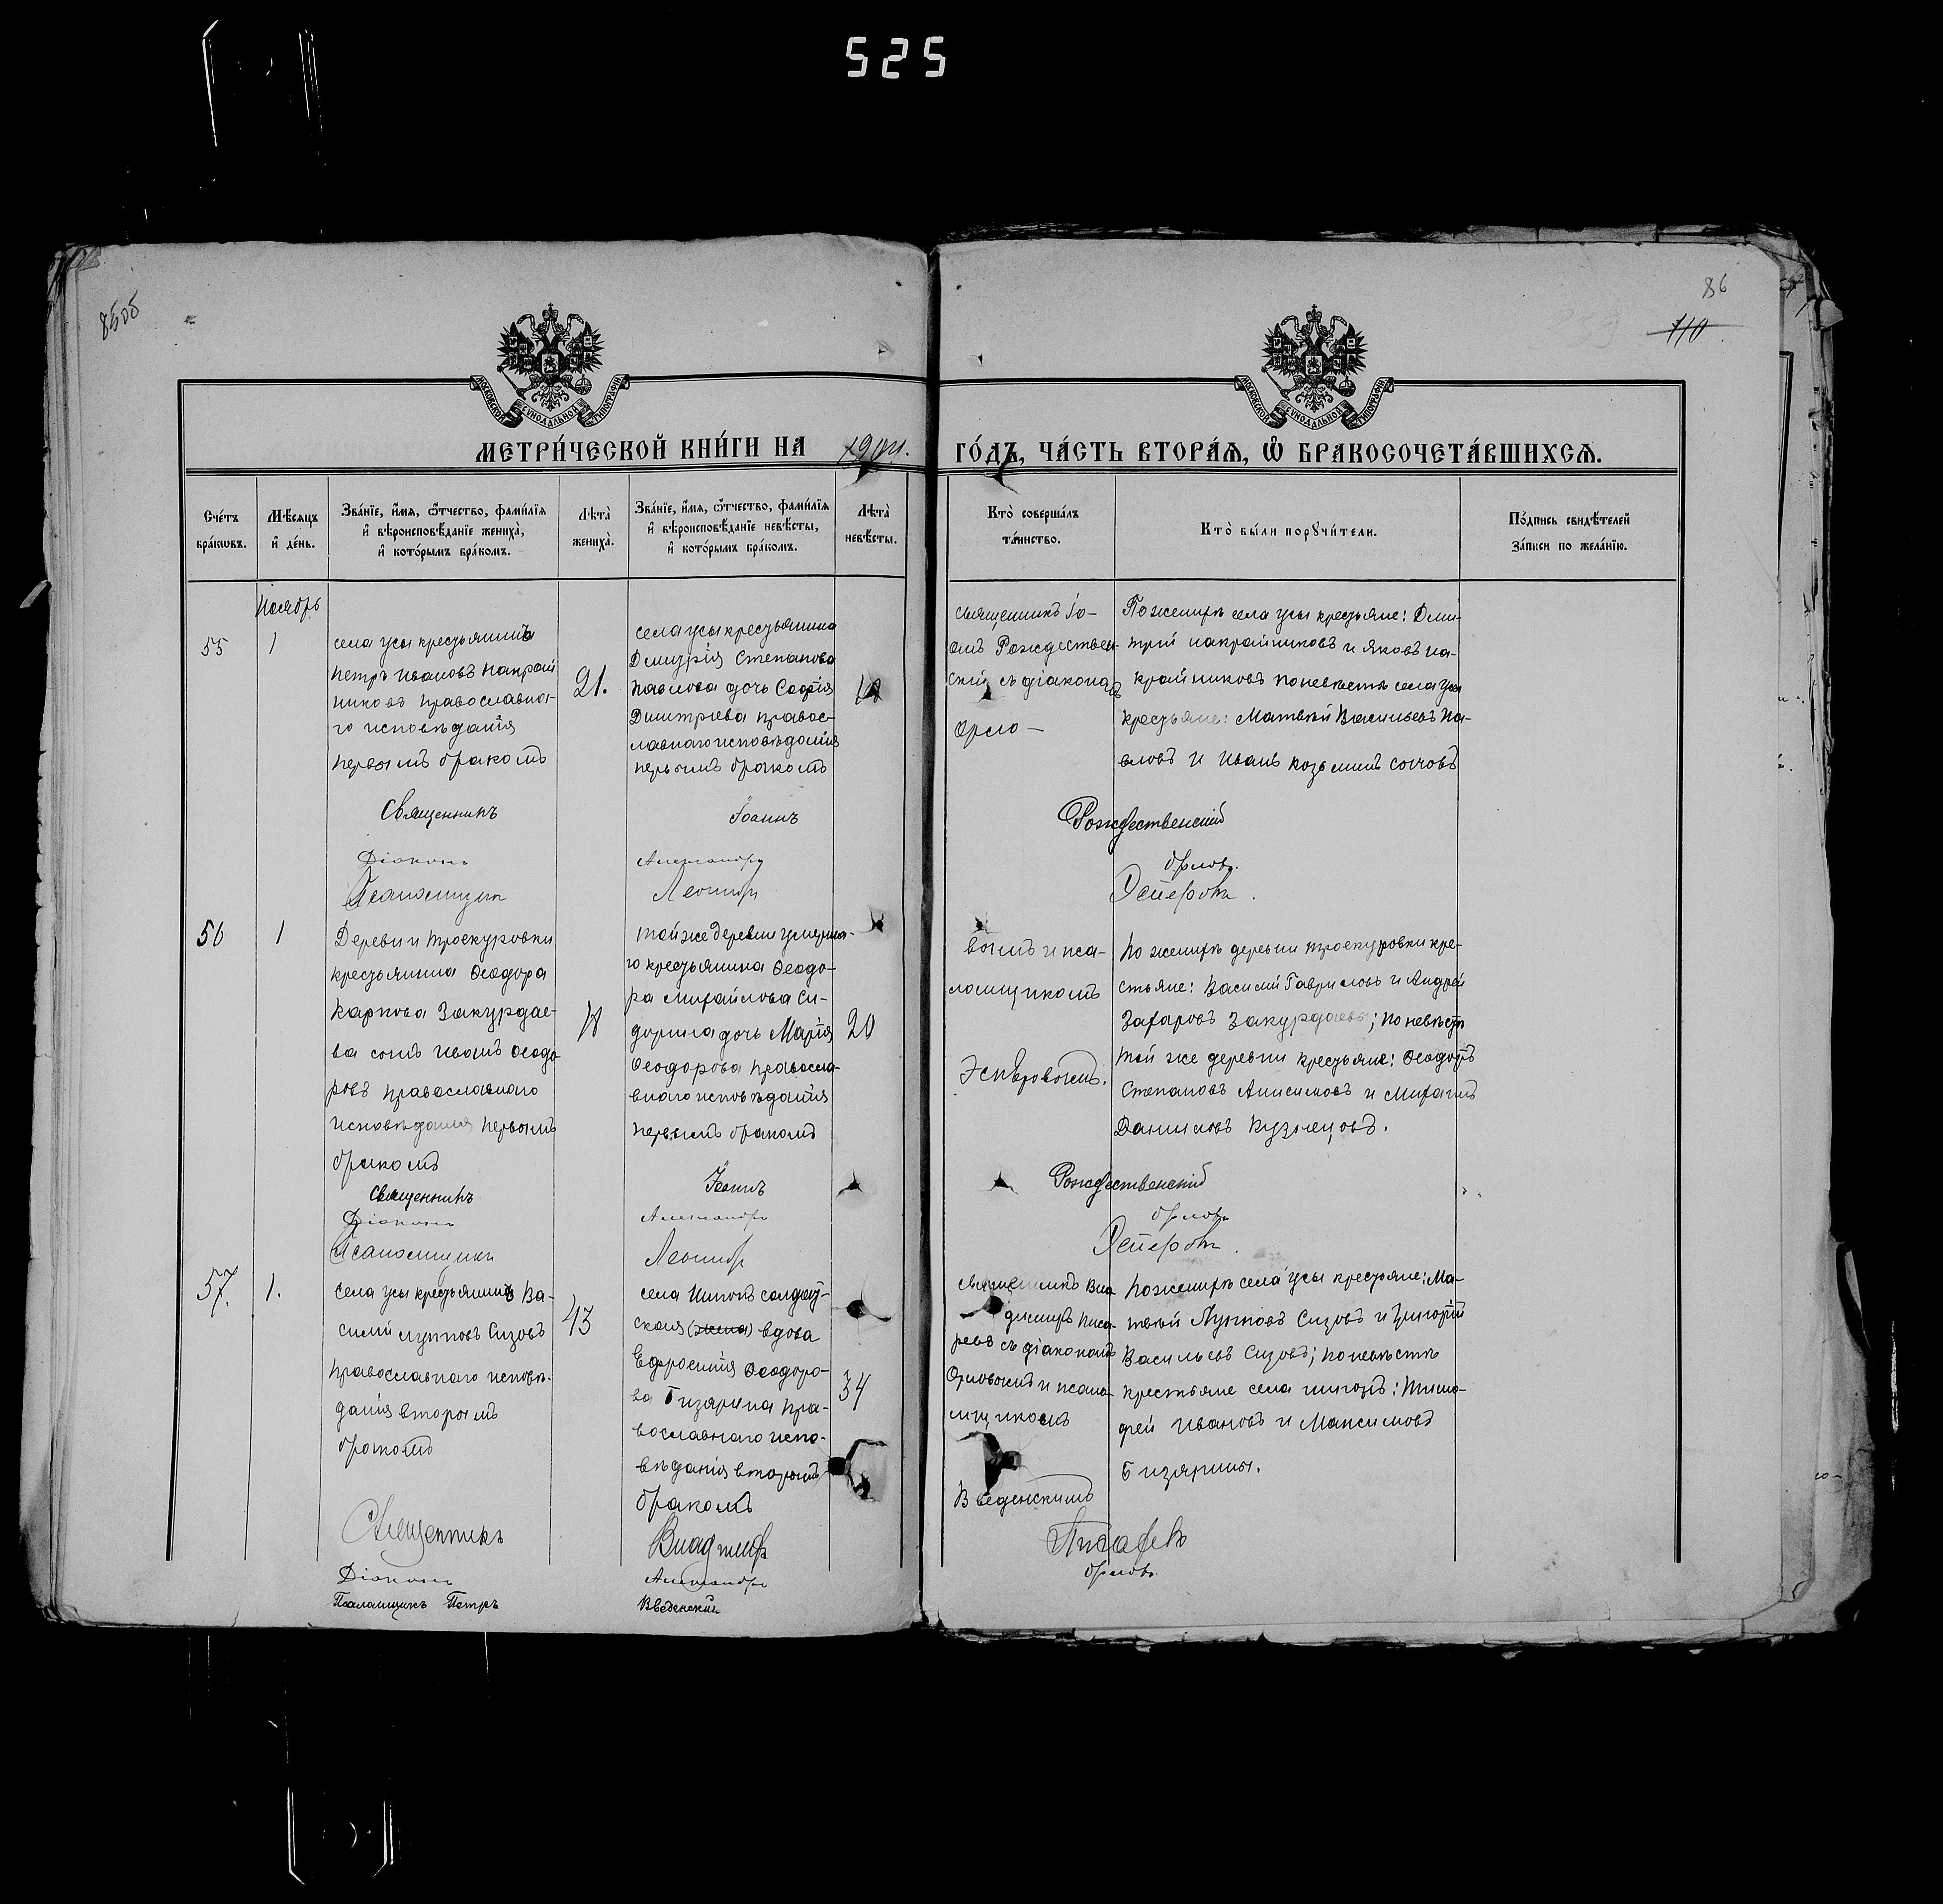 525
86
110
МОСКОВСКОЙ СУНОДАЛЬНОЙ ТИПОГРАФІИ
МОСКОВСКОЙ СУНОДАЛЬНОЙ ТИПОГРАФІИ
МЕТРИ́ЧЕСКОЙ КНИ́ГИ НА 190
ГО́ДЪ, ЧА́СТЬ ВТОРА́Ѧ, Ѡ҆ БРАКОСОЧЕТА́ВШИХСѦ.
Сче́тъ бра́кѡвъ.
Мѣ́сяцъ и҆ де́нь.
Зва́нїе, и҆́мя, ѻ҆́тчество, фами́лїя
и҆ вѣроисповѣ́данїе жениха̀,
и҆ кото́рымъ бра́комъ.
Лѣта̀ жениха̀.
Зва́нїе, и҆́мя, ѻ҆́тчество, фами́лїя
и҆ вѣроисповѣ́данїе невѣ́сты,
и҆ кото́рымъ бра́комъ.
Лѣта̀ невѣ́сты.
Кто̀ соверша́лъ
та́инство.
Кто̀ бы́ли порꙋчи́тели.
По́дпись свидѣ́телей
за́писи по жела́нїю.
Ноябрь
55
1
села Усы крестьянинъ
Петръ Ивановъ Накрай
никовъ православна-
го исповѣданія
первымъ бракомъ
21.
села Усы крестьянина
Димитрія Степанова
Павлова дочь Софія
Димитріева правос-
лавнаго исповѣданія
первымъ бракомъ
священникъ Іо-
аннъ Рождествен-
скій съ діакономъ
Орло-
По женихѣ села Усы крестьяне: Дми-
трій Накрайниковъ и Яковъ На-
крайниковъ по невѣстѣ села Усы
крестьяне: Матвѣй Васильевъ Па-
вловъ и Иванъ Козьминъ
Священникъ Іоаннъ Рождественскій
Діаконъ Александръ Орловъ
Псаломщикъ Леонидъ
56
1
Деревни Троекуровки
крестьянина Ѳеодора
Карпова Закурдае-
ва сынъ Иванъ Ѳеодо-
ровъ православнаго
исповѣданія первымъ
бракомъ
18
той же деревни умерша-
го крестьянина Ѳеодо-
ра Михайлова Си-
дорина дочь Марія
Ѳеодорова правосла-
внаго исповѣданія
первымъ бракомъ
20
вымъ и пса-
ломщикомъ
По женихѣ деревни Троекуровки кре-
стьяне: Василій Гавриловъ и Андрей
Захаровъ Закурдаевы; по невѣстѣ
той же деревни крестьяне: Ѳеодоръ
Степановъ Анисимовъ и Михаилъ
Даниловъ Кузнецовъ.
Священникъ Іоаннъ Рождественскій
Діаконъ Александръ Орловъ
Псаломщикъ Леонидъ
57.
1.
села Усы крестьянинъ Ва-
силій Лупповъ Сизовъ
православнаго исповѣ-
данія вторымъ
бракомъ
43
села солдат-
ская (жена) вдова
Евфросинія Ѳеодоро-
ва Бизярина пра-
вославнаго испо-
вѣданія вторымъ
бракомъ
34
священникъ Вла-
димиръ Писа-
ревъ съ діакономъ
Орловымъ и псало-
мщикомъ
Введенскимъ
По женихѣ села Усы крестьяне: Ма-
твѣй Лупповъ Сизовъ и Григорій
Васильевъ Сизовъ; по невѣстѣ
крестьяне села : Тимо-
фей Ивановъ и Максимовъ
Бизярины.
Священникъ Владимиръ Писаревъ
Діаконъ Александръ Орловъ
Псаломщикъ Петръ Введенскій